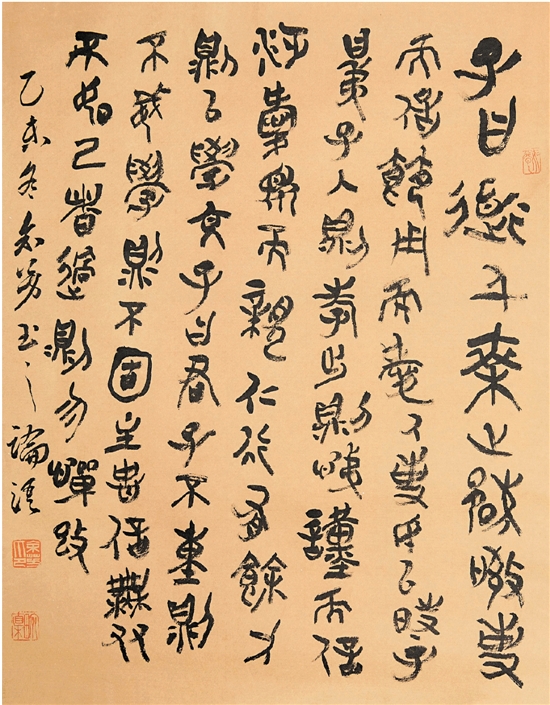 子曰道千乘之國敬事
而信節用而愛人使民以時子
曰弟子入則孝出則悌謹而信
汎愛眾而親仁行有餘力
則以學文子曰君子不重則
不威學則不固主忠信無友
不如己者過則勿憚改
乙未冬 論語